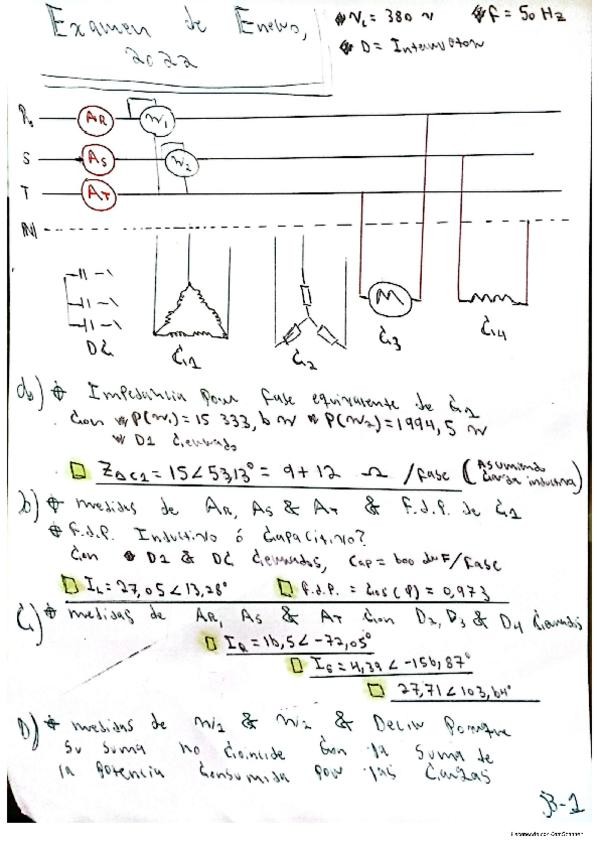 Examen de Enero,
2022
VL = 380 V
f = 50 Hz
D = Interruptor
R
AR
W1
S
AS
W2
T
AT
N
DC
C1
C2
M
C3
C4
a) Impedancia por fase equivalente de C1
Con P(W1) = 15 333,6 W P(W2) = 1994,5 W
D1 Cerrado
Z C1 = 15∠53,13° = 9 + 12 Ω /fase (Asumiendo
Carga inductiva)
b) medidas de AR, AS & AT & f.d.p. de C1
f.d.p. Inductivo ó Capacitivo?
Con D1 & DC Cerrados, Cap = 600 F/fase
IL = 27,05∠13,28°
f.d.p. = Cos(φ) = 0,973
C) medidas de AR, AS & AT Con D2, D3 & D4 Cerrados
IR = 16,5∠-72,05°
IS = 4,39∠-156,87°
27,71∠103,64°
D) medidas de W1 & W2 & Decir Porque
Su Suma no Coincide Con la Suma de
la Potencia Consumida por las Cargas
B-1